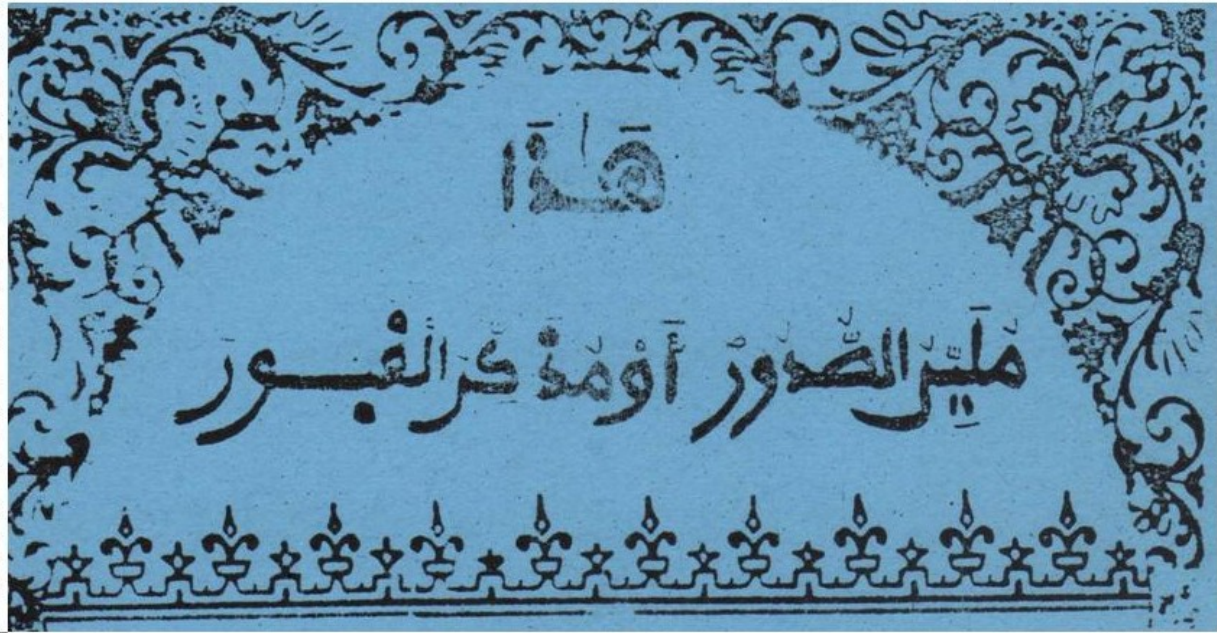 هَٰذَا
مُلَيِّنُ الصُّدُورْ أَوْ مُذَكِّرُ الْقُبُورْ